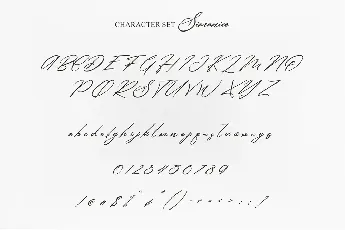 CHARACTER SET
ABCDEFGHIJKLMNO
PQRSTUVWXYZ
abcdefghijklmnopqrstuvwxyz
0123456789